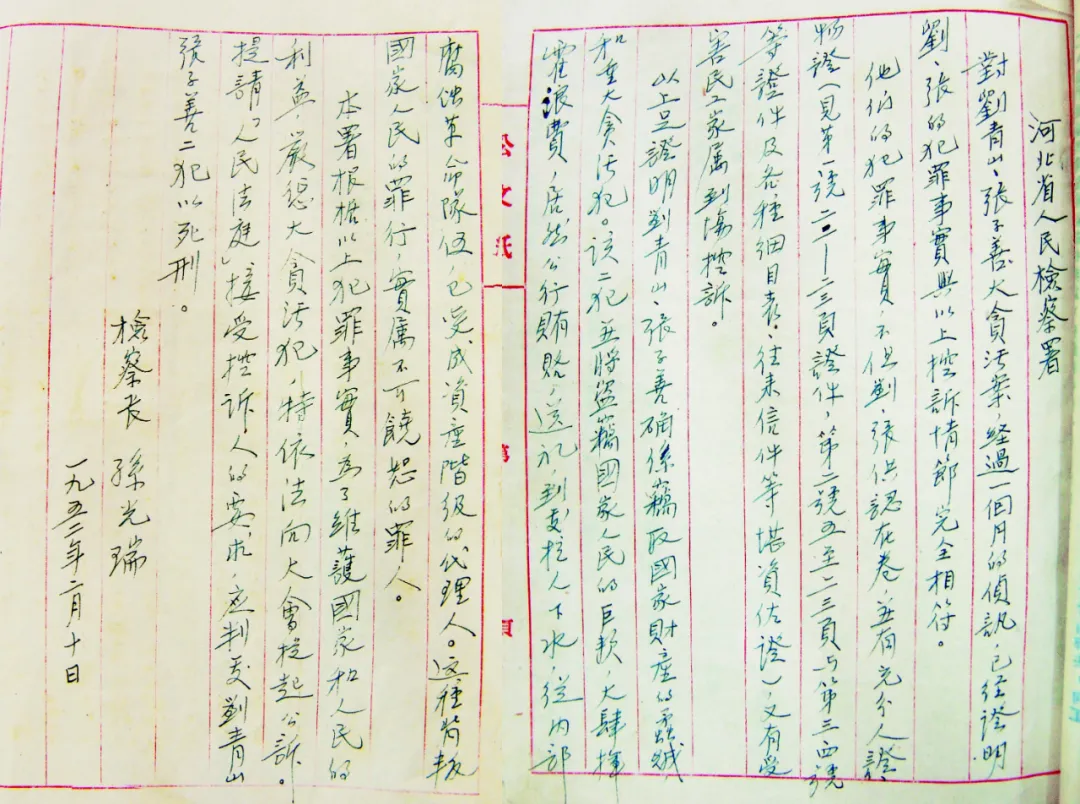 河北省人民檢察署
對劉青山、張子善大貪污案，經過一個月的偵訊，已經證明
劉、張的犯罪事實與以上控訴情節完全相符。
他们的犯罪事實，不但劉、張供認在卷，並有充分人證
物證（見第一號二二－二三頁證件，第二號五至二三頁与第三四號
等證件及各種細目表、往来信件等堪資佐證），又有受
害民工家属到場控訴。
以上足證明劉青山、張子善確係竊取國家財產的蟊賊
和重大貪污犯。该二犯並將盜竊國家人民的巨款，大肆揮
霍浪費，居然公行賄賂，送礼，到處拉人下水，從内部
腐蚀革命隊伍，已变成資產階級的代理人。这種背叛
國家人民的罪行，實属不可饒恕的罪人。
本署根據以上犯罪事實，為了維護國家和人民的
利益，嚴惩大貪污犯，特依法向大會提起公訴。
提請「人民法庭」接受控訴人的要求，应判處劉青山
張子善二犯以死刑。
檢察长 孫光瑞
一九五二年二月十日
公文紙
第
頁